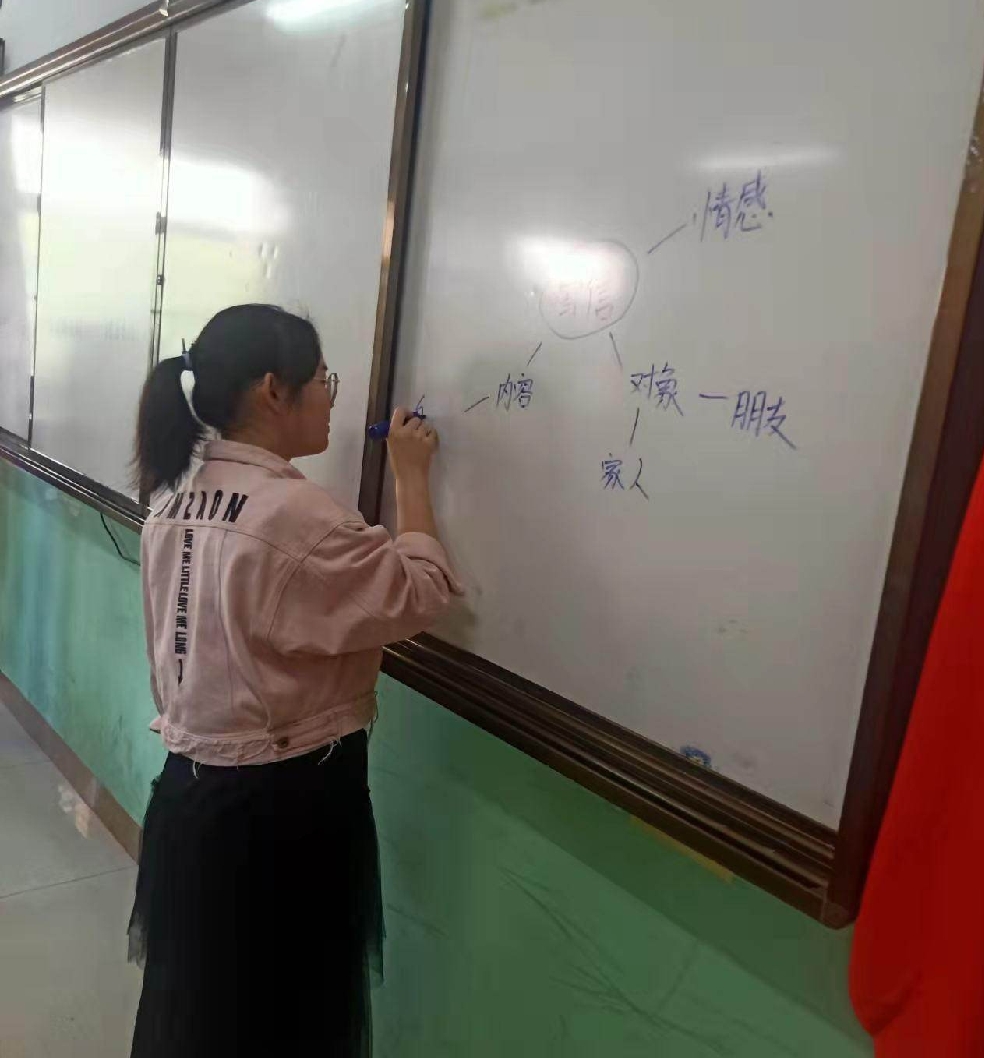 情感
写信
内容
对象 — 朋友
家人
LOVE ME LITTLE LOVE ME LONG